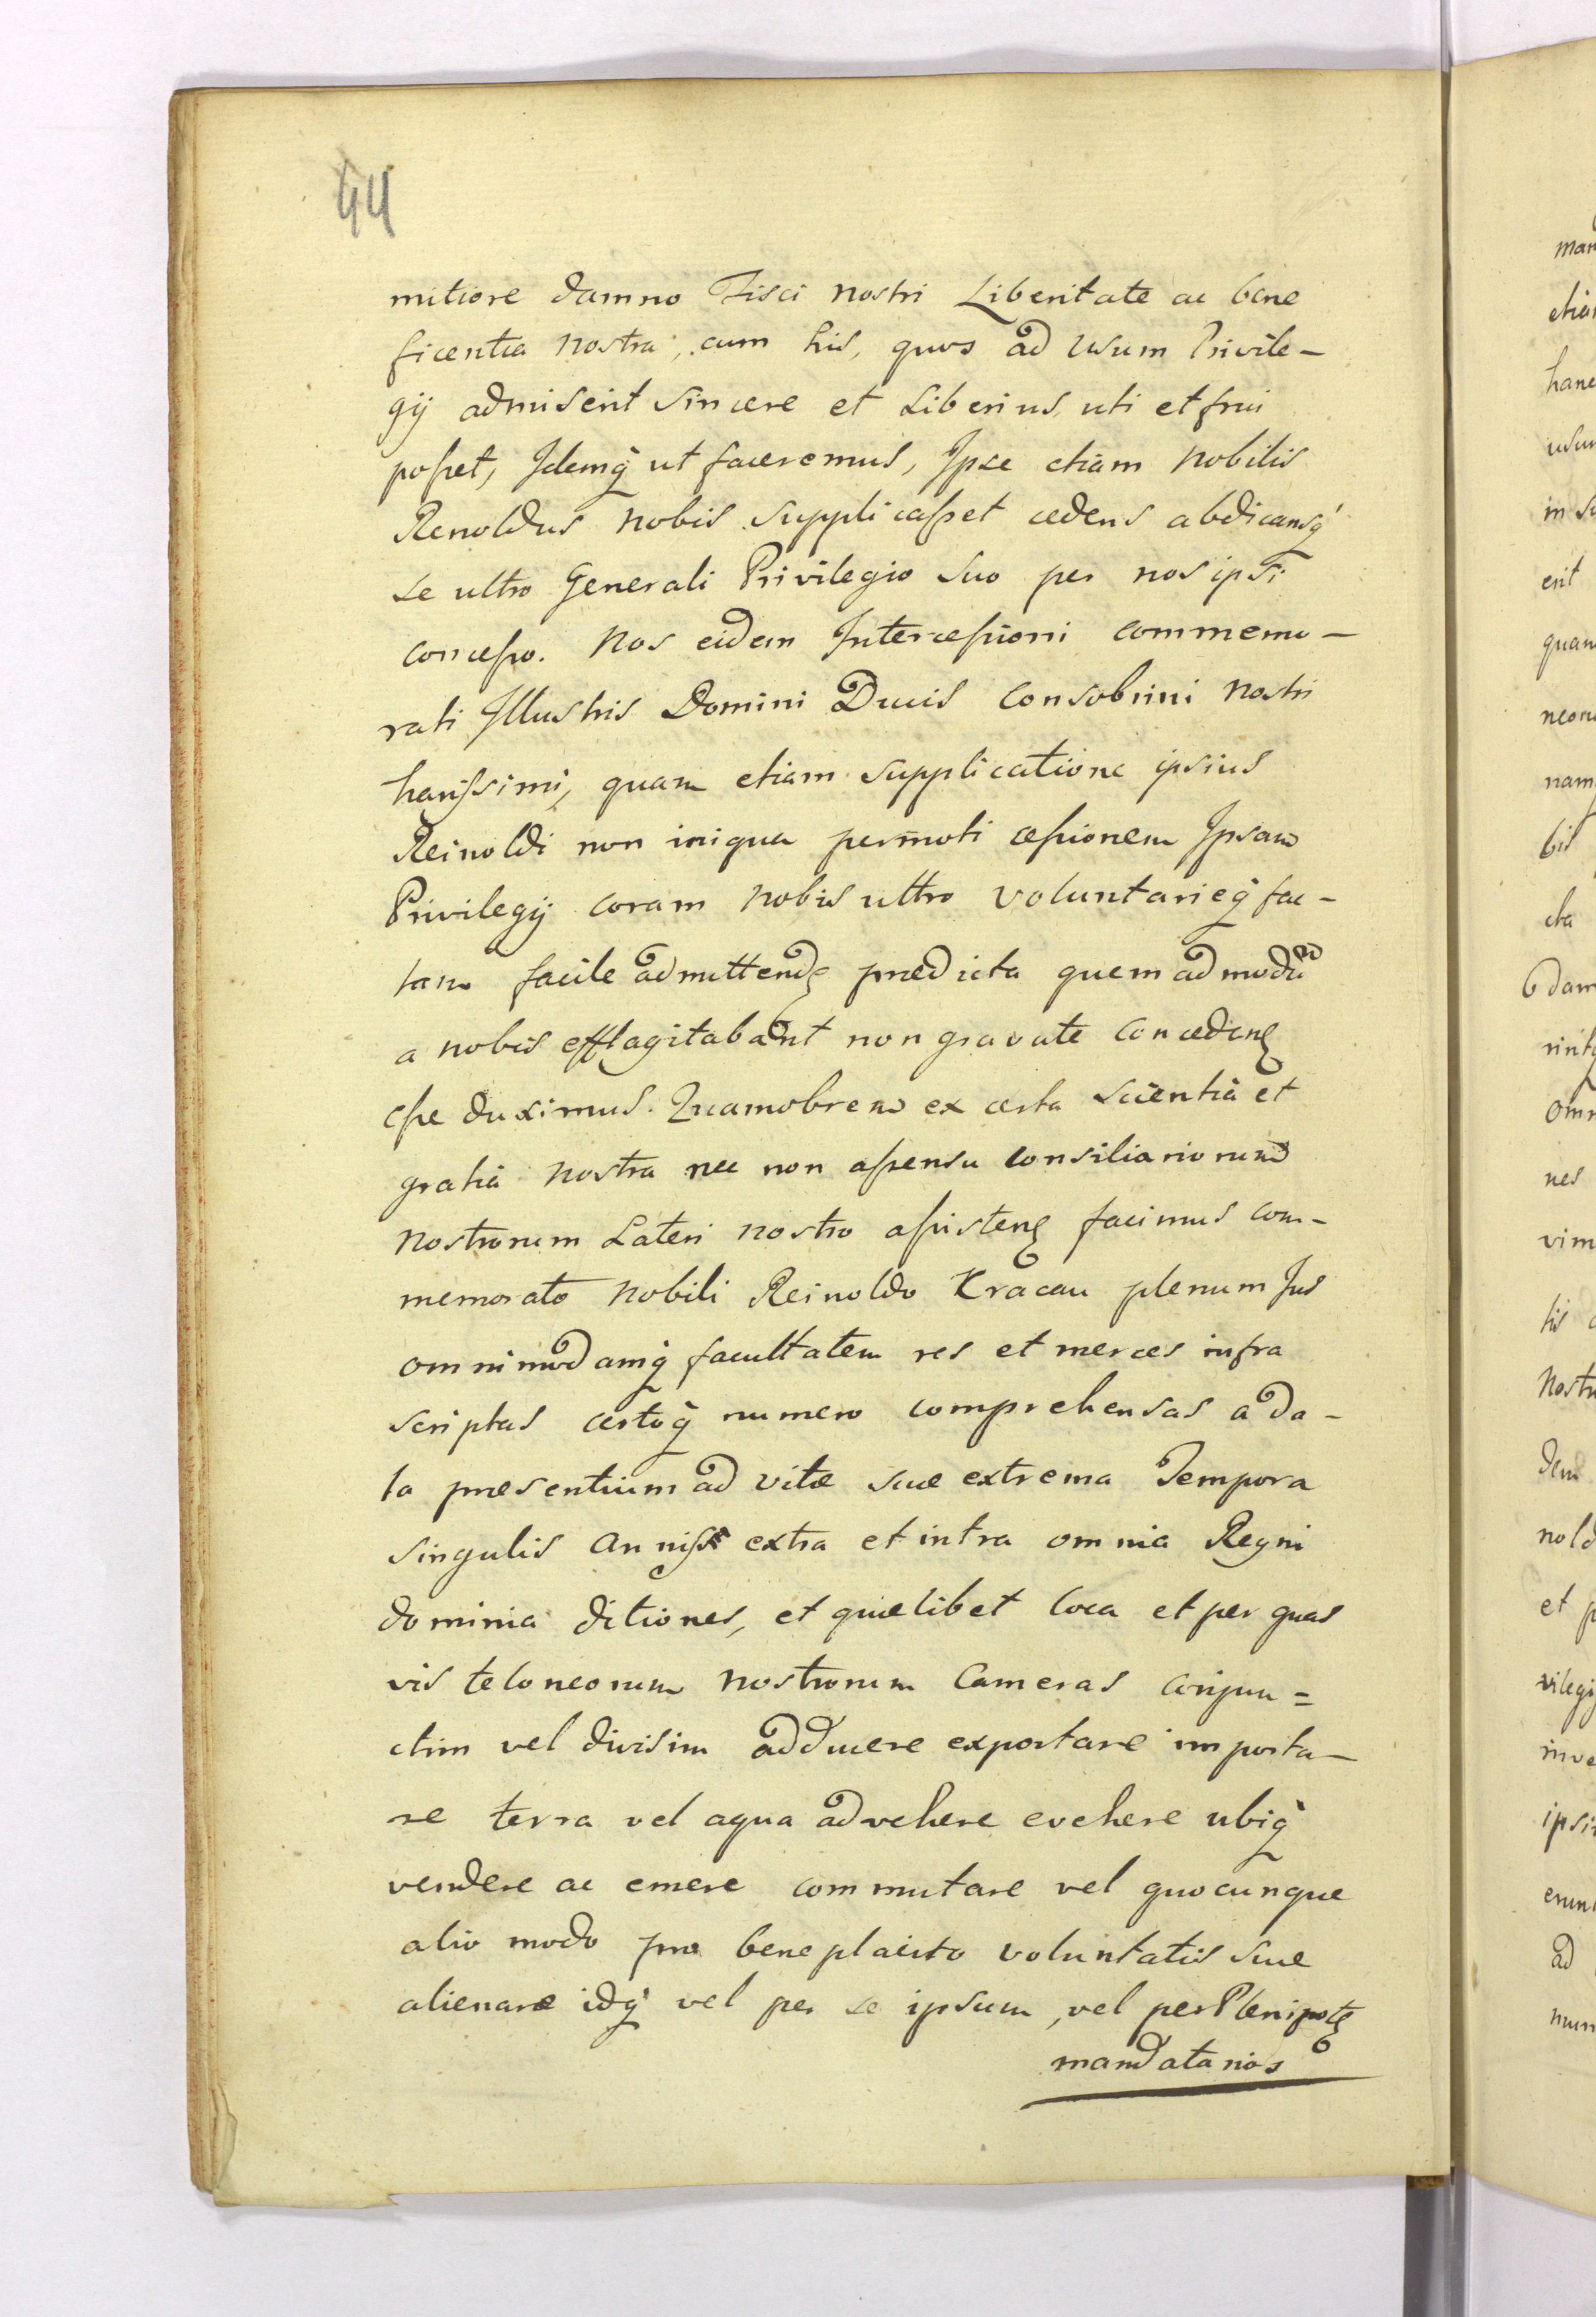 44
mitiore damno Fisci nostri Liberitate ac bene
ficentia nostra, cum his, quos ad Usum Privile-
gij admiserit sincere et Liberius uti et frui
poſset, Idemq̀ ut faceremus, Ipse etiam Nobilis
Renoldus nobis supplicaſset cedens abdicansq̀
se ultro Generali Privilegio suo per nos ipsi
conceſso. Nos eidem Interceſsioni commemo-
rati Illustris Domini Ducis Consobrini Nostri
harisſimi, quam etiam supplicatione ipsius
Reinoldi non iniqua permoti ceſsionem Ipsam
Privilegij coram nobis ultro voluntarieq̀ fac-
tam facile admittendę prædicta quemadmodū
a nobis efflagitabant non gravate concedenę
eſse duximus. Quamobrem ex certa scientia et
gratia nostra nec non aſsensu Consiliariorum
Nostrorum Lateri nostro aſsistenę facimus com-
memorato Nobili Reinoldo Kracau plenum Jus
omnimodamq̀ facultatem res et merces infra
scriptas certoq̀ numero comprehensas a da-
ta præsentium ad vitæ suæ extrema Tempora
singulis annis extra et intra omnia Regni
dominia ditiones, et quælibet loca et per quas
vis teloneorum nostrorum Cameras conjun=
ctim vel divisim adducere exportare importa-
re terra vel aqua advehere evehere ubiq̀
vendere ac emere commutare vel quocunque
alio modo pro beneplacito voluntatis suæ
alienare idq̀ vel per se ipsum, vel per Plenipotę
mandatarios